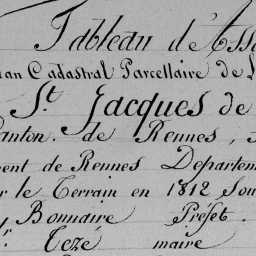 Tableau d'Ass
an Cadastral Parcellaire de L
St. Jacques de
Canton. de Rennes,
ent de Rennes Departem
r le Terrain en 1812 Sou
Bonnaire Préfet.
r. Tezé maire